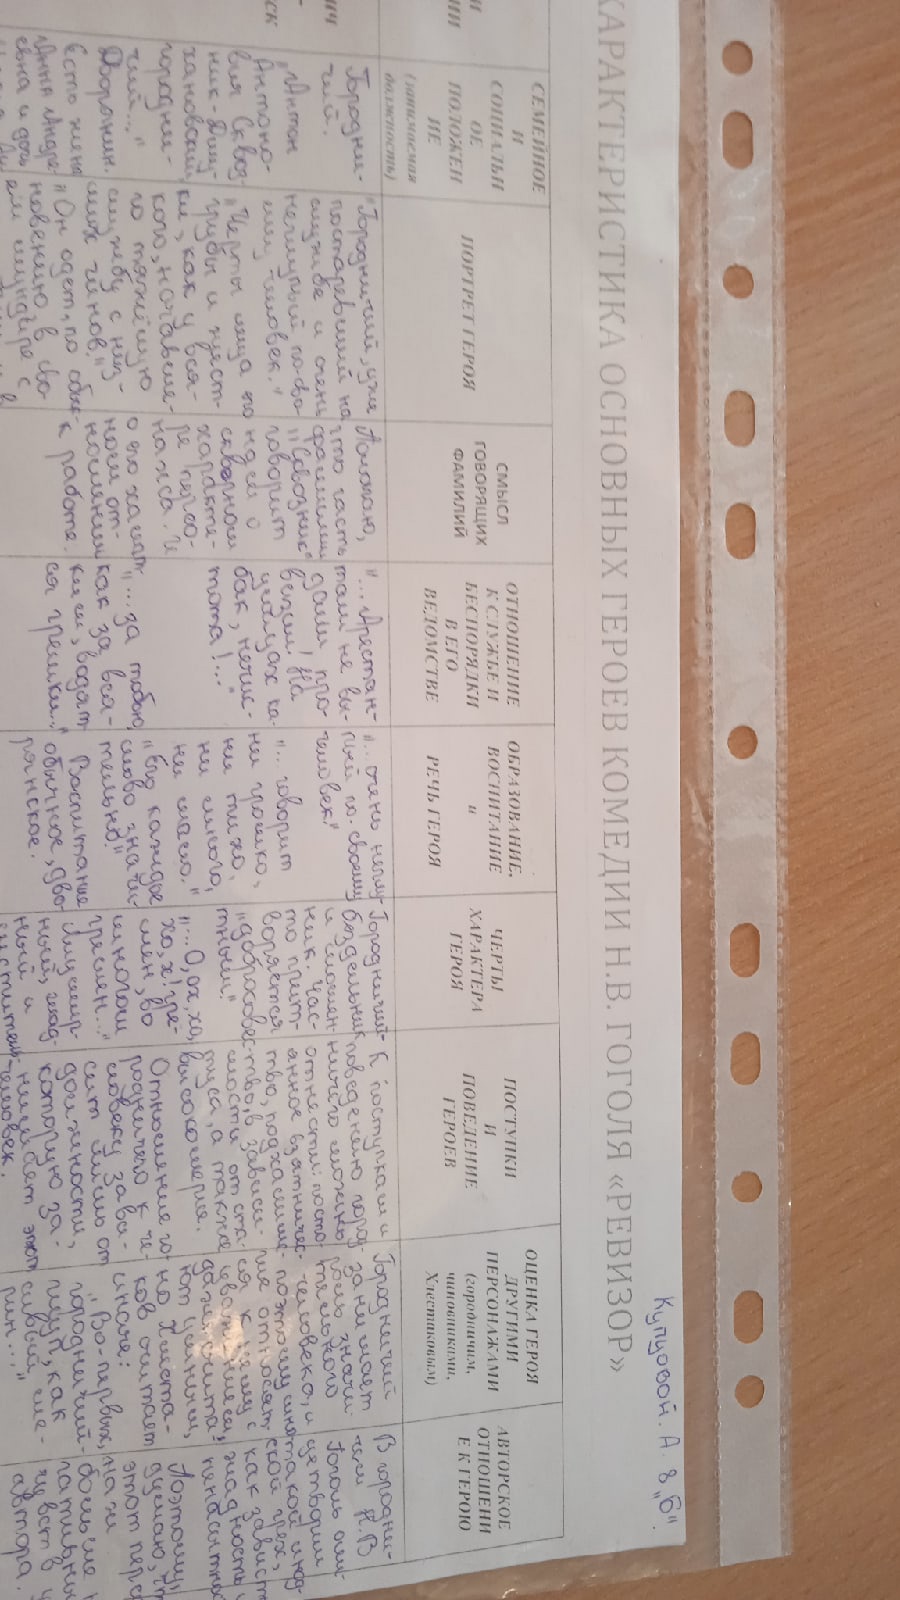 Купцовой. А. 8 „Б".
ХАРАКТЕРИСТИКА ОСНОВНЫХ ГЕРОЕВ КОМЕДИИ Н.В. ГОГОЛЯ «РЕВИЗОР»
СЕМЕЙНОЕ
И
СОЦИАЛЬН
ОЕ
ПОЛОЖЕН
ИЕ
(занимаемая
должность)
ПОРТРЕТ ГЕРОЯ
СМЫСЛ
ГОВОРЯЩИХ
ФАМИЛИЙ
ОТНОШЕНИЕ
К СЛУЖБЕ И
БЕСПОРЯДКИ
В ЕГО
ВЕДОМСТВЕ
ОБРАЗОВАНИЕ,
ВОСПИТАНИЕ
и
РЕЧЬ ГЕРОЯ
ЧЕРТЫ
ХАРАКТЕРА
ГЕРОЯ
ПОСТУПКИ
И
ПОВЕДЕНИЕ
ГЕРОЕВ
ОЦЕНКА ГЕРОЯ
ДРУГИМИ
ПЕРСОНАЖАМИ
(городничим,
чиновниками,
Хлестаковым)
АВТОРСКОЕ
ОТНОШЕНИ
Е К ГЕРОЮ
Городни-
чий.
„Антон
Антоно-
вич Сквоз-
ник-Дму-
хановский,
городни-
чий..."
Дворянин.
Есть жена
Анна Андре-
евна и дочь
"Городничий, уже
постаревший на
службе и очень
неглупый по-сво-
ему человек."
„Черты лица его
грубы и жест-
ки, как у вся-
кого, начавше-
го тяжёлую
службу с низ-
ших чинов."
„Он одет, по обык-
новению, в сво-
ем мундире с
Полагаю,
что часть
фамилии
„Сквозник"
говорит
нам о
скверном
характе-
ре персо-
нажа. И
о его халат-
ном от-
ношении
к работе.
"... Арестан-
там не вы-
дали про-
визии! На
улицах ка-
бак, нечис-
тота!..."
„...за тобою,
как за вся-
ким, водят-
ся грешки..."
„... очень неглу-
пый по-своему
человек."
„... говорит
ни громко,
ни тихо,
ни много,
ни мало."
„Его каждое
слово значи-
тельно."
Воспитание
обычное, дво-
рянское.
Городничий-
бездельник
и мошен-
ник. Час-
то прит-
воряется
„добросовес-
тным."
„...О, ох, хо,
хо, х! гре-
шен, во
многом
грешен..."
Лицемер-
ный, жад-
ный и
К поступкам и
поведению город-
ничего можно
отнести: посто-
янное взятничес-
тво, подхалимс-
тво, в зависи-
мости от ста-
туса, а также
высокомерие.
Отношение го-
родничего к че-
ловеку зави-
сит лишь от
должности,
которую за-
нимает этот
человек.
Городничий
занимает
роль значи-
тельного
человека, и
поэтому мно-
гие относят-
ся к нему с
уважением,
даже счита-
ют умным,
но Хлеста-
ков считает
иначе:
„Во-первых,
городничий-
глуп, как
сивый ме-
рин..."
В городни-
чем Н.В
Гоголь оли-
цетворил
такой люд-
ской грех,
как зависть
жадность и
ненасытнос
Поэтому,
думаю, чт
этот перс
наж
больше н
гативны
чувств у
автора.